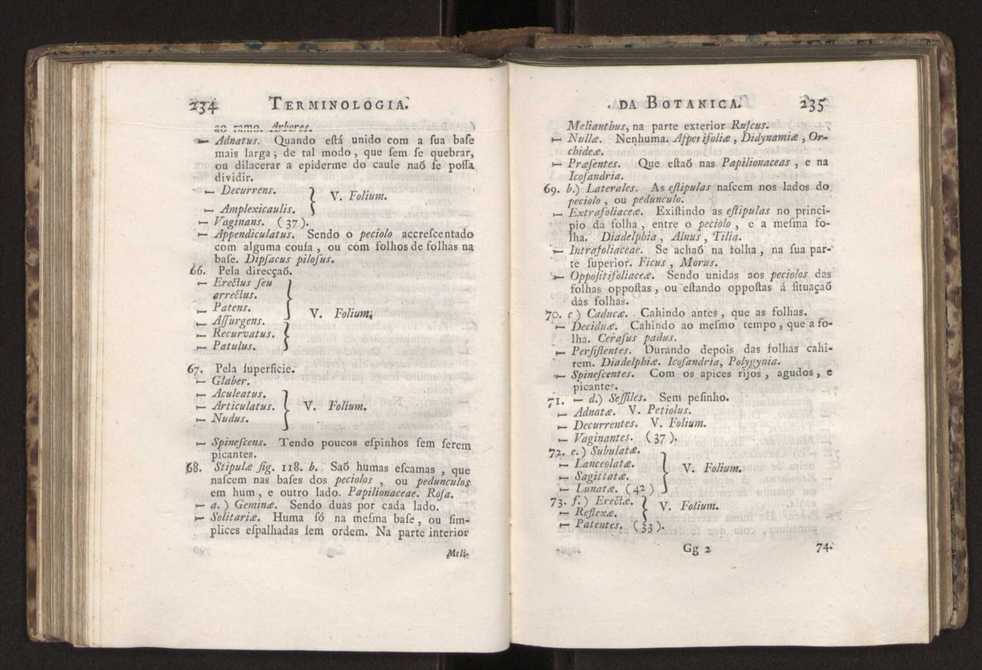 234 TERMINOLOGIA.
ao ramo. Arbores.
— Adnatus. Quando eſtá unido com a ſua baſe
mais larga; de tal modo, que ſem ſe quebrar,
ou dilacerar a epiderme do caule naõ ſe poſſa
dividir.
— Decurrens.
— Amplexicaulis. } V. Folium.
— Vaginans. (37).
— Appendiculatus. Sendo o peciolo accreſcentado
com alguma couſa, ou com folhos de folhas na
baſe. Dipſacus piloſus.
66. Pela direcçaõ.
— Erectus ſeu
arrectus.
— Patens.
— Aſſurgens. } V. Folium.
— Recurvatus.
— Patulus.
67. Pela ſuperficie.
— Glaber.
— Aculeatus.
— Articulatus. } V. Folium.
— Nudus.
— Spineſcens. Tendo poucos eſpinhos ſem ſerem
picantes.
68. Stipulæ fig. 118. b. Saõ humas eſcamas, que
naſcem nas baſes dos peciolos, ou pedunculos
em hum, e outro lado. Papilionaceae. Roſa.
— a.) Geminæ. Sendo duas por cada lado.
— Solitariæ. Huma ſó na meſma baſe, ou ſim-
plices eſpalhadas ſem ordem. Na parte interior
Meli-
DA BOTANICA. 235
Melianthus, na parte exterior Ruſcus.
— Nullæ. Nenhuma. Aſperifoliæ, Didynamiæ, Or-
chideæ.
— Præſentes. Que eſtaõ nas Papilionaceas, e na
Icoſandria.
69. b.) Laterales. As eſtipulas naſcem nos lados do
peciolo, ou pedunculo.
— Extrafoliaceæ. Exiſtindo as eſtipulas no princi-
pio da folha, entre o peciolo, e a meſma fo-
lha. Diadelphia, Alnus, Tilia.
— Intrafoliaceae. Se achaõ na folha, na ſua par-
te ſuperior. Ficus, Morus.
— Oppoſitifoliaceæ. Sendo unidas aos peciolos das
folhas oppoſtas, ou eſtando oppoſtas á ſituaçaõ
das folhas.
70. c) Caducæ. Cahindo antes, que as folhas.
— Deciduæ. Cahindo ao meſmo tempo, que a fo-
lha. Ceraſus padus.
— Perſiſtentes. Durando depois das folhas cahi-
rem. Diadelphiæ. Icoſandria, Polygynia.
— Spineſcentes. Com os apices rijos, agudos, e
picantes.
71. — d.) Seſſiles. Sem peſinho.
— Adnatæ. V. Petiolus.
— Decurrentes. V. Folium.
— Vaginantes. (37).
72. e.) Subulatæ.
— Lanceolatæ.
— Sagittatæ. } V. Folium.
— Lunatæ. (42)
73. f.) Erectæ.
— Reflexæ. } V. Folium.
— Patentes. (33).
Gg 2 74.